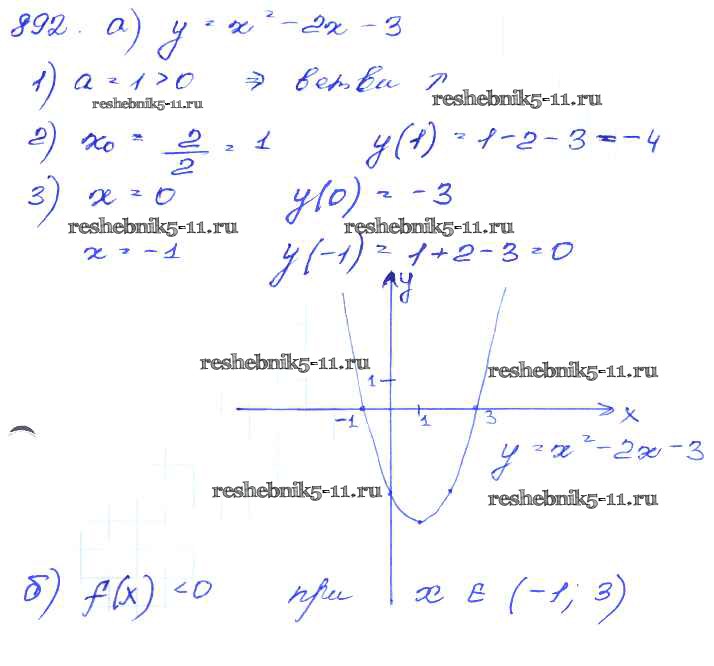 892. а) y = x² - 2x - 3
1) a = 1 > 0 ⇒ ветви ↑
reshebnik5-11.ru reshebnik5-11.ru
2) x₀ = 2/2 = 1 y(1) = 1 - 2 - 3 = -4
3) x = 0 y(0) = -3
reshebnik5-11.ru reshebnik5-11.ru
x = -1 y(-1) = 1 + 2 - 3 = 0
y
reshebnik5-11.ru reshebnik5-11.ru
1
-1 1 3 x
y = x² - 2x - 3
reshebnik5-11.ru reshebnik5-11.ru
б) f(x) < 0 при x ∈ (-1; 3)